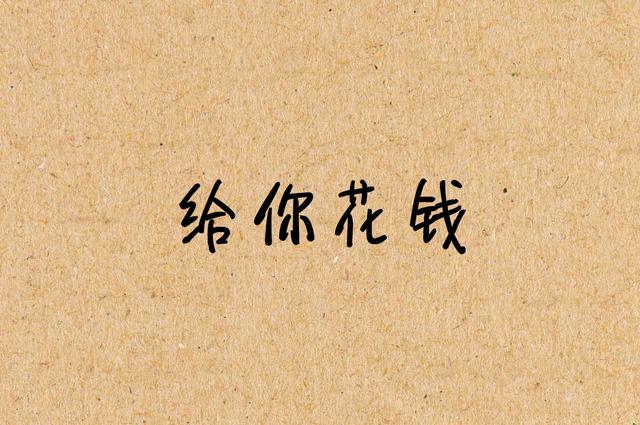 给你花钱